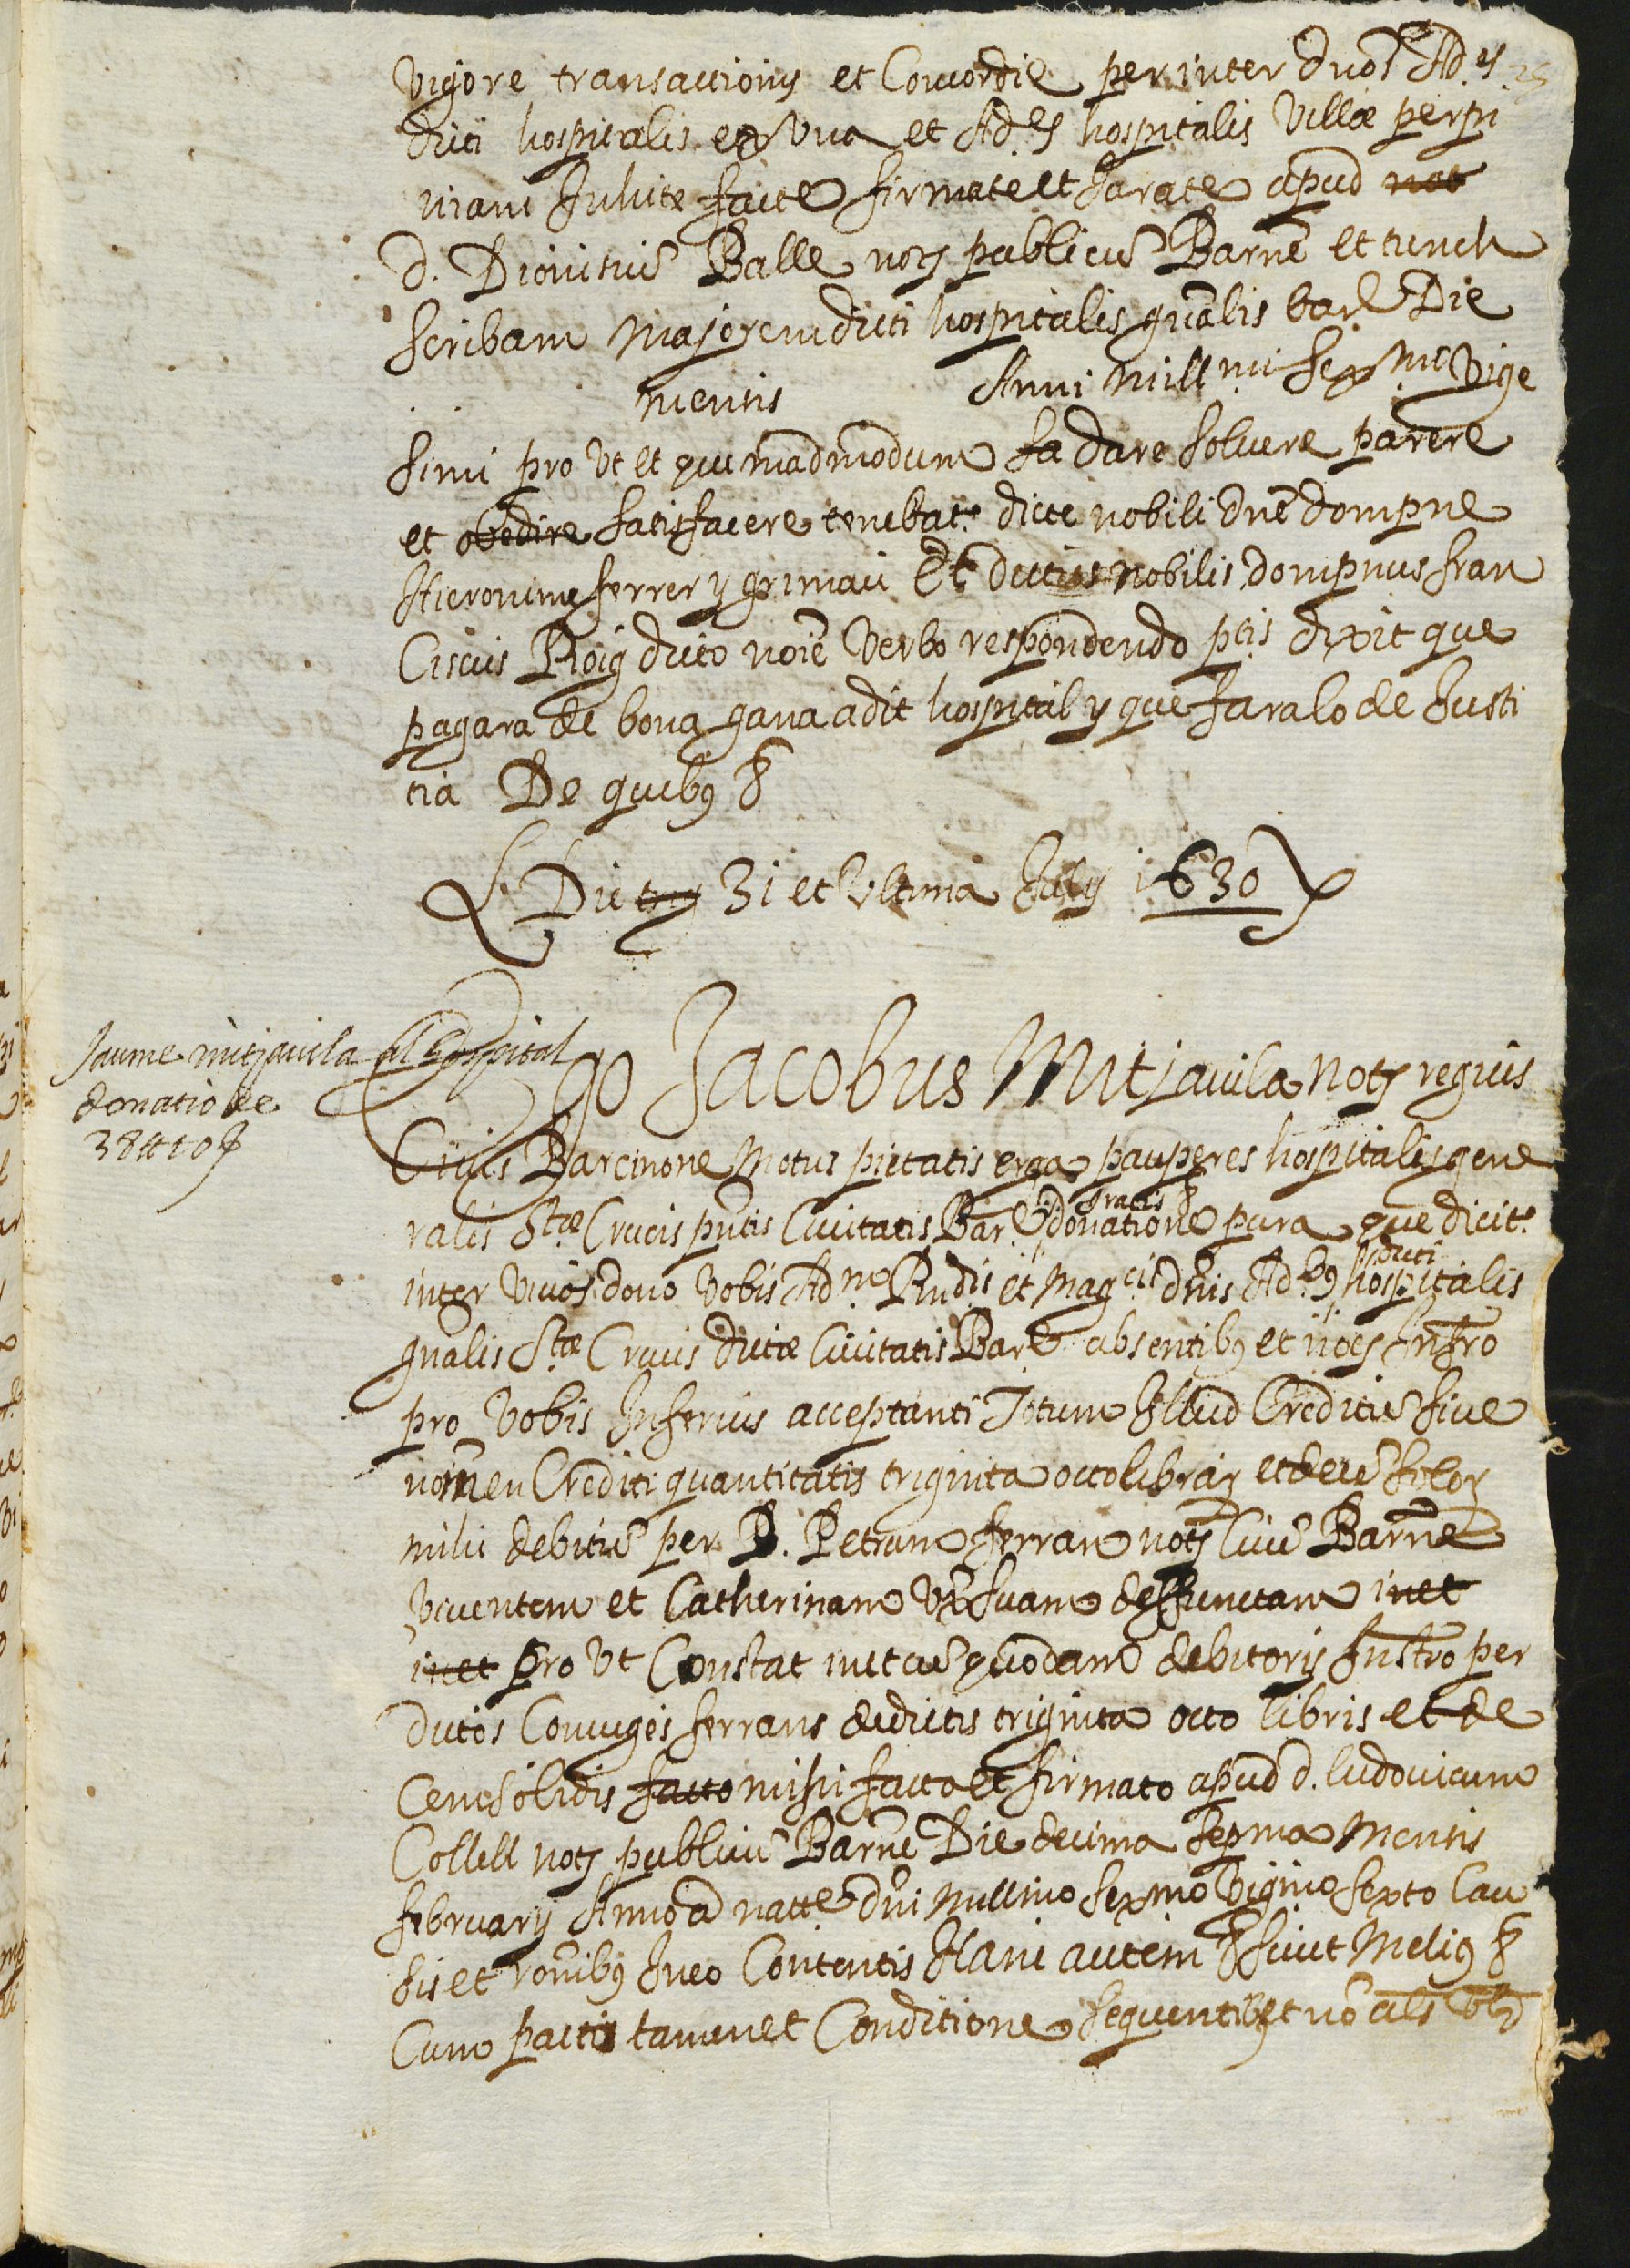 vigore transactionis et Concordie per inter dnos Ad.es 25
dicti hospitalis ex una et Ad.es hospitalis Villæ perpi
niani Inhite facte firmate et Jurate apud not
d. Dionisiũ Balle noty publicũ Barne et tunch
scribam majorem dicti hospitalis gñalis bar.e Die
mensis Anni mill.mi sex.mi vige
simi pro ut et quemadmodum sa dare solvere parere
et obedire satisfacere tenebat.r dicte nobili Dne dompne
Hieronime ferrer y grimau Et dictus nobilis dompnus fran
Ciscus Roig dicto noie verbo respondendo ptis dixit que
pagara de bona gana a dit hospital y que fara lo de Justi
tia De quibus &
Die 31 et Ultima Julij 1630
Jaume mitjavila al hospital
donatio de
38 ₶ 10 ẞ
Ego Jacobus Mitjavila noty regius
Civis Barcinone motus pietatis erga pauperes hospitalis gene
ralis Stæ Crucis pntis Civitatis Bar.e gratis & donatione pura que dicit.r
inter vivos dono vobis Ad.m Rndis et Mag.cis dnis Ad.bus dicti hospitalis
gnalis Stæ Crucis dictæ Civitatis Bar.e absentibus et noty Infro
pro vobis Inferius acceptanti Totum Illud Creditũ sive
nomen Crediti quantitatis triginta octo librar et decẽ solor
mihi debitũ per D. Petrum ferran noty Civẽ Barne
viventem et Catherinam Ux suam deffunctam inet
inet pro ut Constat inet cũ quodam debitorij Instro per
dictos Conuges ferrans de dictis triginta octo libris et de
cem solidis facto mihi facto et firmato apud d. ludovicum
Collell noty publicũ Barne Die decima sepma mensis
februarij Anno a natte dni millmo sexmo vigmo sexto Cau
sis et ronibus In eo Contentis Hanc autem & sicut Melius &
Cum pactis tamen et Conditione sequentibus et nõ als